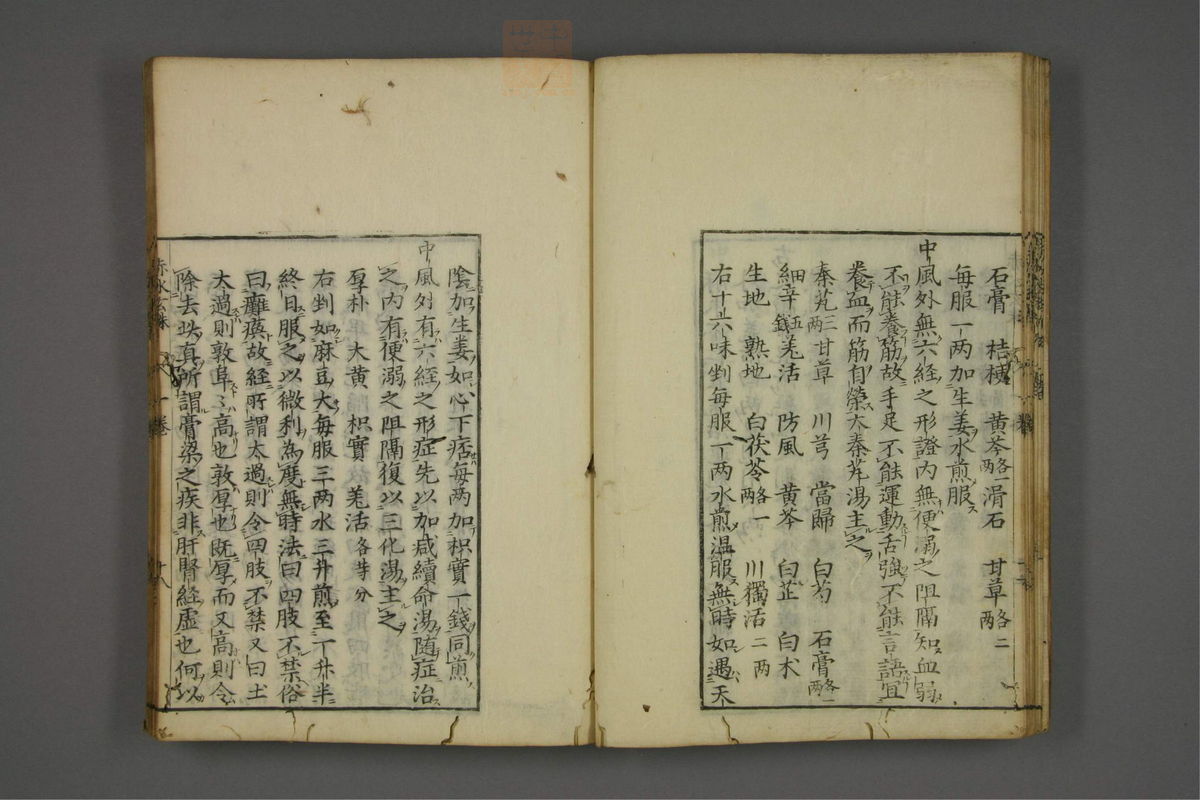 石膏 桔梗 黄芩各一兩滑石 甘草各二兩
每服一两加生姜水煎服
中風外無六經之形證内無便溺之阻隔知血弱
不能養筋故手足不能運動舌強不能言語宜
養血而筋自榮大秦艽湯主之
秦艽三两甘草 川芎 當歸 白芍 石膏各一两
細辛五錢羌活 防風 黄芩 白芷 白朮
生地 熟地 白茯苓各一两 川獨活二两
右十六味剉每服一两水煎温服無時如遇天
陰加生姜如心下痞每两加枳實一錢同煎
中風外有六經之形症先以加减續命湯随症治
之内有便溺之阻隔復以三化湯主之
厚朴 大黄 枳實 羌活各等分
右剉如麻豆大每服三两水三升煎至一升半
終日服之以微利為度無時法曰四肢不禁俗
曰癱瘓故經所謂太過則令四肢不禁又曰土
太過則敦阜〻高也敦厚也既厚而又高則令
除去此真所謂膏粱之疾非肝腎經虚也何以
一卷
十八